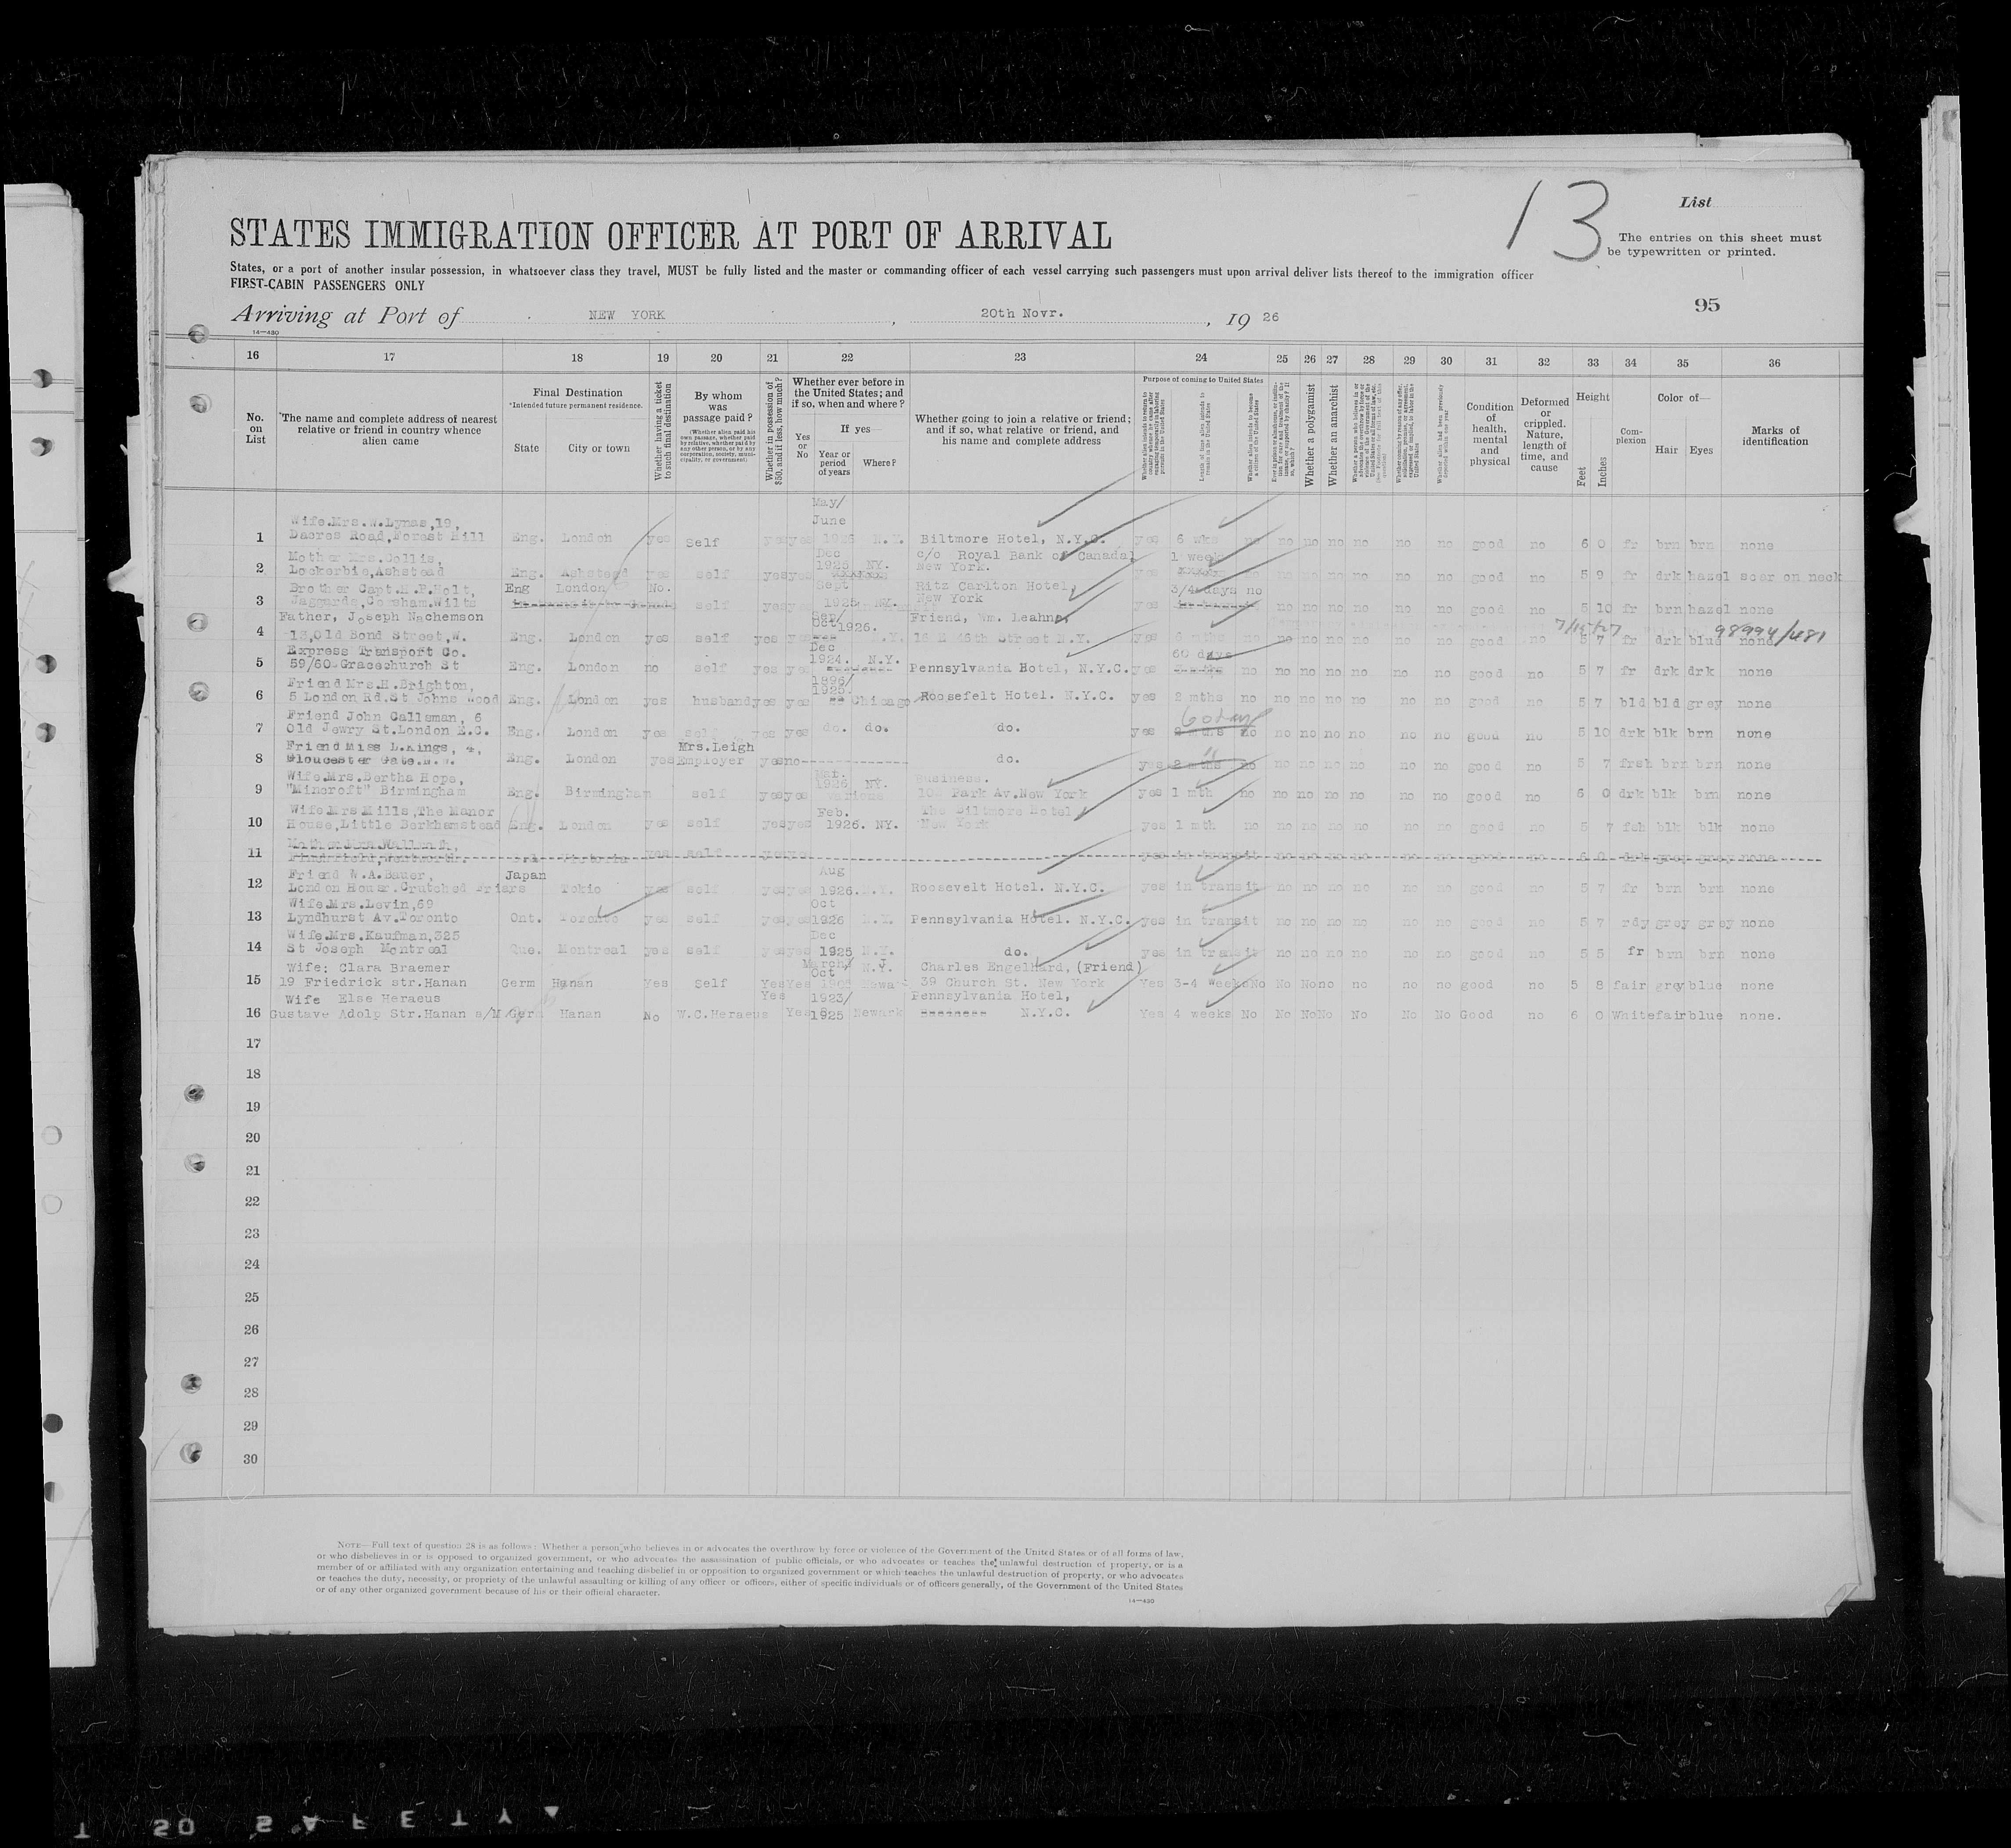 13
List
STATES IMMIGRATION OFFICER AT PORT OF ARRIVAL
The entries on this sheet must
be typewritten or printed.
States, or a port of another insular possession, in whatsoever class they travel, MUST be fully listed and the master or commanding officer of each vessel carrying such passengers must upon arrival deliver lists thereof to the immigration officer
FIRST-CABIN PASSENGERS ONLY
95
Arriving at Port of NEW YORK, 20th Novr., 19 26
14—430
16 17 18 19 20 21 22 23 24 25 26 27 28 29 30 31 32 33 34 35 36
No. on List
The name and complete address of nearest relative or friend in country whence alien came
Final Destination
*Intended future permanent residence.
State
City or town
Whether having a ticket to such final destination
By whom was passage paid?
(Whether alien paid his own passage, whether paid by relative, whether paid by any other person, or by any corporation, society, municipality, or government)
Whether in possession of $50, and if less, how much?
Whether ever before in the United States; and if so, when and where?
Yes or No
If yes—
Year or period of years
Where?
Whether going to join a relative or friend; and if so, what relative or friend, and his name and complete address
Purpose of coming to United States
Length of time alien intends to remain in the United States
Whether alien intends to become a citizen of the United States
Whether a polygamist
Whether an anarchist
Condition of health, mental and physical
Deformed or crippled. Nature, length of time, and cause
Height
Feet
Inches
Complexion
Color of—
Hair
Eyes
Marks of identification
1 Wife.Mrs.W.Lynas,19, Dacres Road,Forest Hill Eng. London yes Self yes yes May/ June 1926 N.Y. Biltmore Hotel, N.Y.C. yes 6 wks no no no no no no no good no 6 0 fr brn brn none
2 Mother Mrs.Collis, Lockerbie,Ashstead Eng. Ashstead yes self yes yes Dec 1925 NY. c/o Royal Bank of Canada New York. yes 1 week no no no no no no no good no 5 9 fr drk hazel scar on neck
3 Brother Capt.H.P.Holt, Jaggards,Corsham.Wilts Eng London No. self yes yes Sept 1925 NY. Ritz Carlton Hotel, New York yes 3/4 days no in transit no no no no no no good no 5 10 fr brn hazel none
4 Father, Joseph Nachemson 13,Old Bond Street,W. Eng. London yes self yes yes Oct 1926. N.Y. Friend, Wm. Leahne 16 E 45th Street N.Y. yes 6 mths no no no no no no no good no 5 7 fr drk blue none
7/15/27 98994/481
5 Express Transport Co. 59/60 Gracechurch St Eng. London no self yes yes Dec 1924. N.Y. Pennsylvania Hotel, N.Y.C. yes 60 days no no no no no no no good no 5 7 fr drk drk none
6 Friend Mrs.H.Brighton, 5 London Rd.St Johns Wood Eng. London yes husband yes yes 1896/ 1925. Chicago Roosefelt Hotel. N.Y.C. yes 2 mths no no no no no no no good no 5 7 bld bld grey none
7 Friend John Callsman, 6 Old Jewry St.London E.C. Eng. London yes self yes yes do. do. do. yes 60 days 2 mths no no no no no no no good no 5 10 drk blk brn none
8 Friend Miss L.Kings, 4, Gloucester Gate.N.W. Eng. London yes Mrs.Leigh Employer yes no-------------- do. yes 2 mths no no no no no no no good no 5 7 fresh brn brn none
9 Wife.Mrs.Bertha Hope, "Mincroft" Birmingham Eng. Birmingham self yes yes Mar. 1926 NY. various Business. 103 Park Av.New York yes 1 mth no no no no no no no good no 6 0 drk blk brn none
10 Wife Mrs Mills,The Manor House,Little Berkhamstead Eng. London yes self yes yes Feb. 1926. NY. The Biltmore Hotel, New York yes 1 mth no no no no no no no good no 5 7 fsh blk blk none
11 Victoria yes self yes yes yes in transit no no no no no no good no 6 0 drk grey grey none
12 Friend W.A.Bauer, London House.Crutched Friars Japan Tokio yes self yes yes Aug 1926. N.Y. Roosevelt Hotel. N.Y.C. yes in transit no no no no no no good no 5 7 fr brn brn none
13 Wife.Mrs.Levin,69 Lyndhurst Av.Toronto Ont. Toronto yes self yes yes Oct 1926 N.Y. Pennsylvania Hotel. N.Y.C. yes in transit no no no no no no good no 5 7 rdy grey grey none
14 Wife.Mrs.Kaufman,325 St Joseph Montreal Que. Montreal yes self yes yes Dec 1925 N.Y. do. yes in transit no no no no no no good no 5 5 fr brn brn none
15 Wife: Clara Braemer 19 Friedrick str.Hanan Germ Hanan Yes Self Yes Yes March/ Oct N.Y. Newark Charles Engelhard, (Friend) 39 Church St. New York Yes 3-4 Weeks No No No no no no no good no 5 8 fair grey blue none
16 Wife Else Heraeus Gustave Adolp Str.Hanan a/M Germ Hanan No W.C.Heraeus Yes Yes 1923/ 1925 Newark Pennsylvania Hotel, Business N.Y.C. Yes 4 weeks No No No No No No No Good no 6 0 White fair blue none.
17
18
19
20
21
22
23
24
25
26
27
28
29
30
NOTE—Full text of question 28 is as follows: Whether a person who believes in or advocates the overthrow by force or violence of the Government of the United States or of all forms of law,
or who disbelieves in or is opposed to organized government, or who advocates the assassination of public officials, or who advocates or teaches the unlawful destruction of property, or is a
member of or affiliated with any organization entertaining and teaching disbelief in or opposition to organized government or which teaches the unlawful destruction of property, or who advocates
or teaches the duty, necessity, or propriety of the unlawful assaulting or killing of any officer or officers, either of specific individuals or of officers generally, of the Government of the United States
or of any other organized government because of his or their official character.
14—430
SAFETY